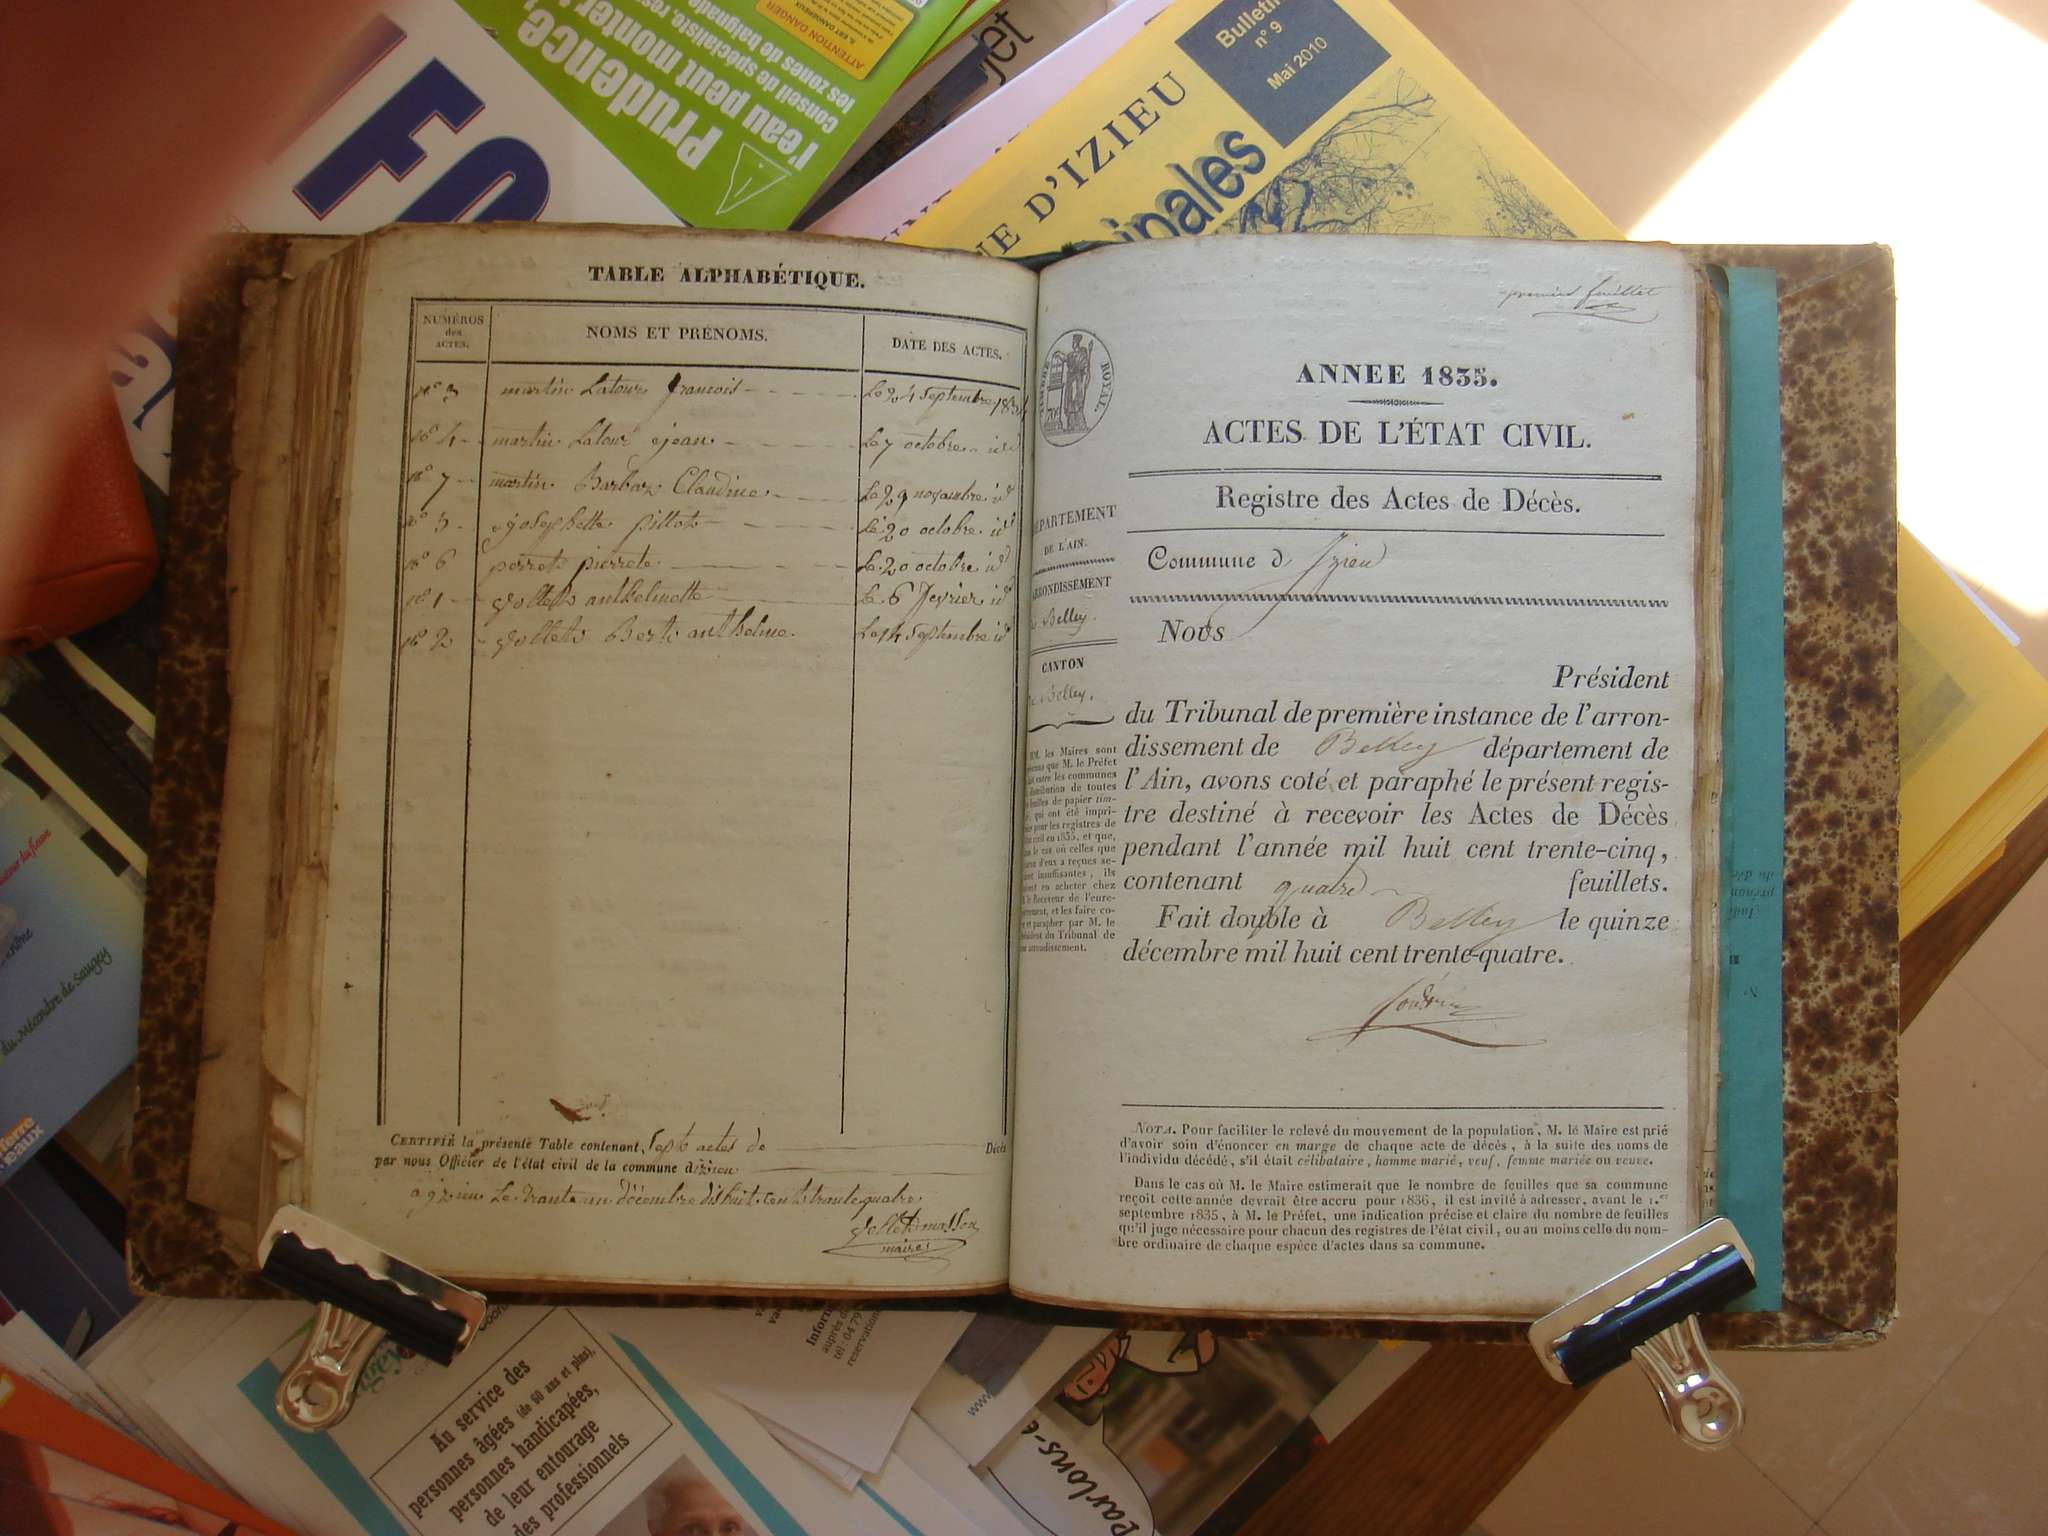 Prudence,
l'eau peut monter
conseil de spécialiste, res
les zones de baignade
ATTENTION DANGER
jet
Bulletin
n° 9
Mai 2010
NE D'IZIEU
ipales
TABLE ALPHABÉTIQUE.
NUMÉROS des ACTES. NOMS ET PRÉNOMS. DATE DES ACTES.
n° 3 martin Latour francois Le 24 septembre 1834
n° 4 martin Latour jean Le 7 octobre id
n° 7 martin Barbaz Claudine Le 29 novembre id
n° 5 josephette pillot Le 20 octobre id
n° 6 perret pierrete Le 20 octobre id
n° 1 anthelmette Le 6 fevrier id
n° 2 Bert anthelme Le 14 septembre id
CERTIFIÉ la présente Table contenant sept actes de Décès
par nous Officier de l'état civil de la commune d'izieu
a izieu Le trante un décembre dishuit cents trante quatre
maire
premier feuillet
TIMBRE ROYAL.
ANNEE 1835.
ACTES DE L'ÉTAT CIVIL.
Registre des Actes de Décès.
DÉPARTEMENT
DE L'AIN.
ARRONDISSEMENT
de Belley.
CANTON
de Belley.
Commune d'Izieu
Nous
Président
du Tribunal de première instance de l'arron-
dissement de Belley département de
l'Ain, avons coté et paraphé le présent regis-
tre destiné à recevoir les Actes de Décès
pendant l'année mil huit cent trente-cinq,
contenant quatre feuillets.
Fait double à Belley le quinze
décembre mil huit cent trente-quatre.
MM. les Maires sont
que M. le Préfet
entre les communes
distribution de toutes
feuilles de papier tim-
qui ont été impri-
pour les registres de
civil en 1835, et que,
le cas où celles que
d'eux a reçues se-
insuffisantes, ils
en acheter chez
le Receveur de l'enre-
gistrement, et les faire co-
et parapher par M. le
Président du Tribunal de
arrondissement.
NOTA. Pour faciliter le relevé du mouvement de la population, M. le Maire est prié
d'avoir soin d'énoncer en marge de chaque acte de décès, à la suite des noms de
l'individu décédé, s'il était célibataire, homme marié, veuf, femme mariée ou veuve.
Dans le cas où M. le Maire estimerait que le nombre de feuilles que sa commune
reçoit cette année devrait être accru pour 1836, il est invité à adresser, avant le 1.er
septembre 1835, à M. le Préfet, une indication précise et claire du nombre de feuilles
qu'il juge nécessaire pour chacun des registres de l'état civil, ou au moins celle du nom-
bre ordinaire de chaque espèce d'actes dans sa commune.
du Méandre de Saugey
Au service des
personnes âgées (de 60 ans et plus),
personnes handicapées,
de leur entourage
des professionnels
Inform
auprès d
tél 04 79
reservation
www
Parlons-e